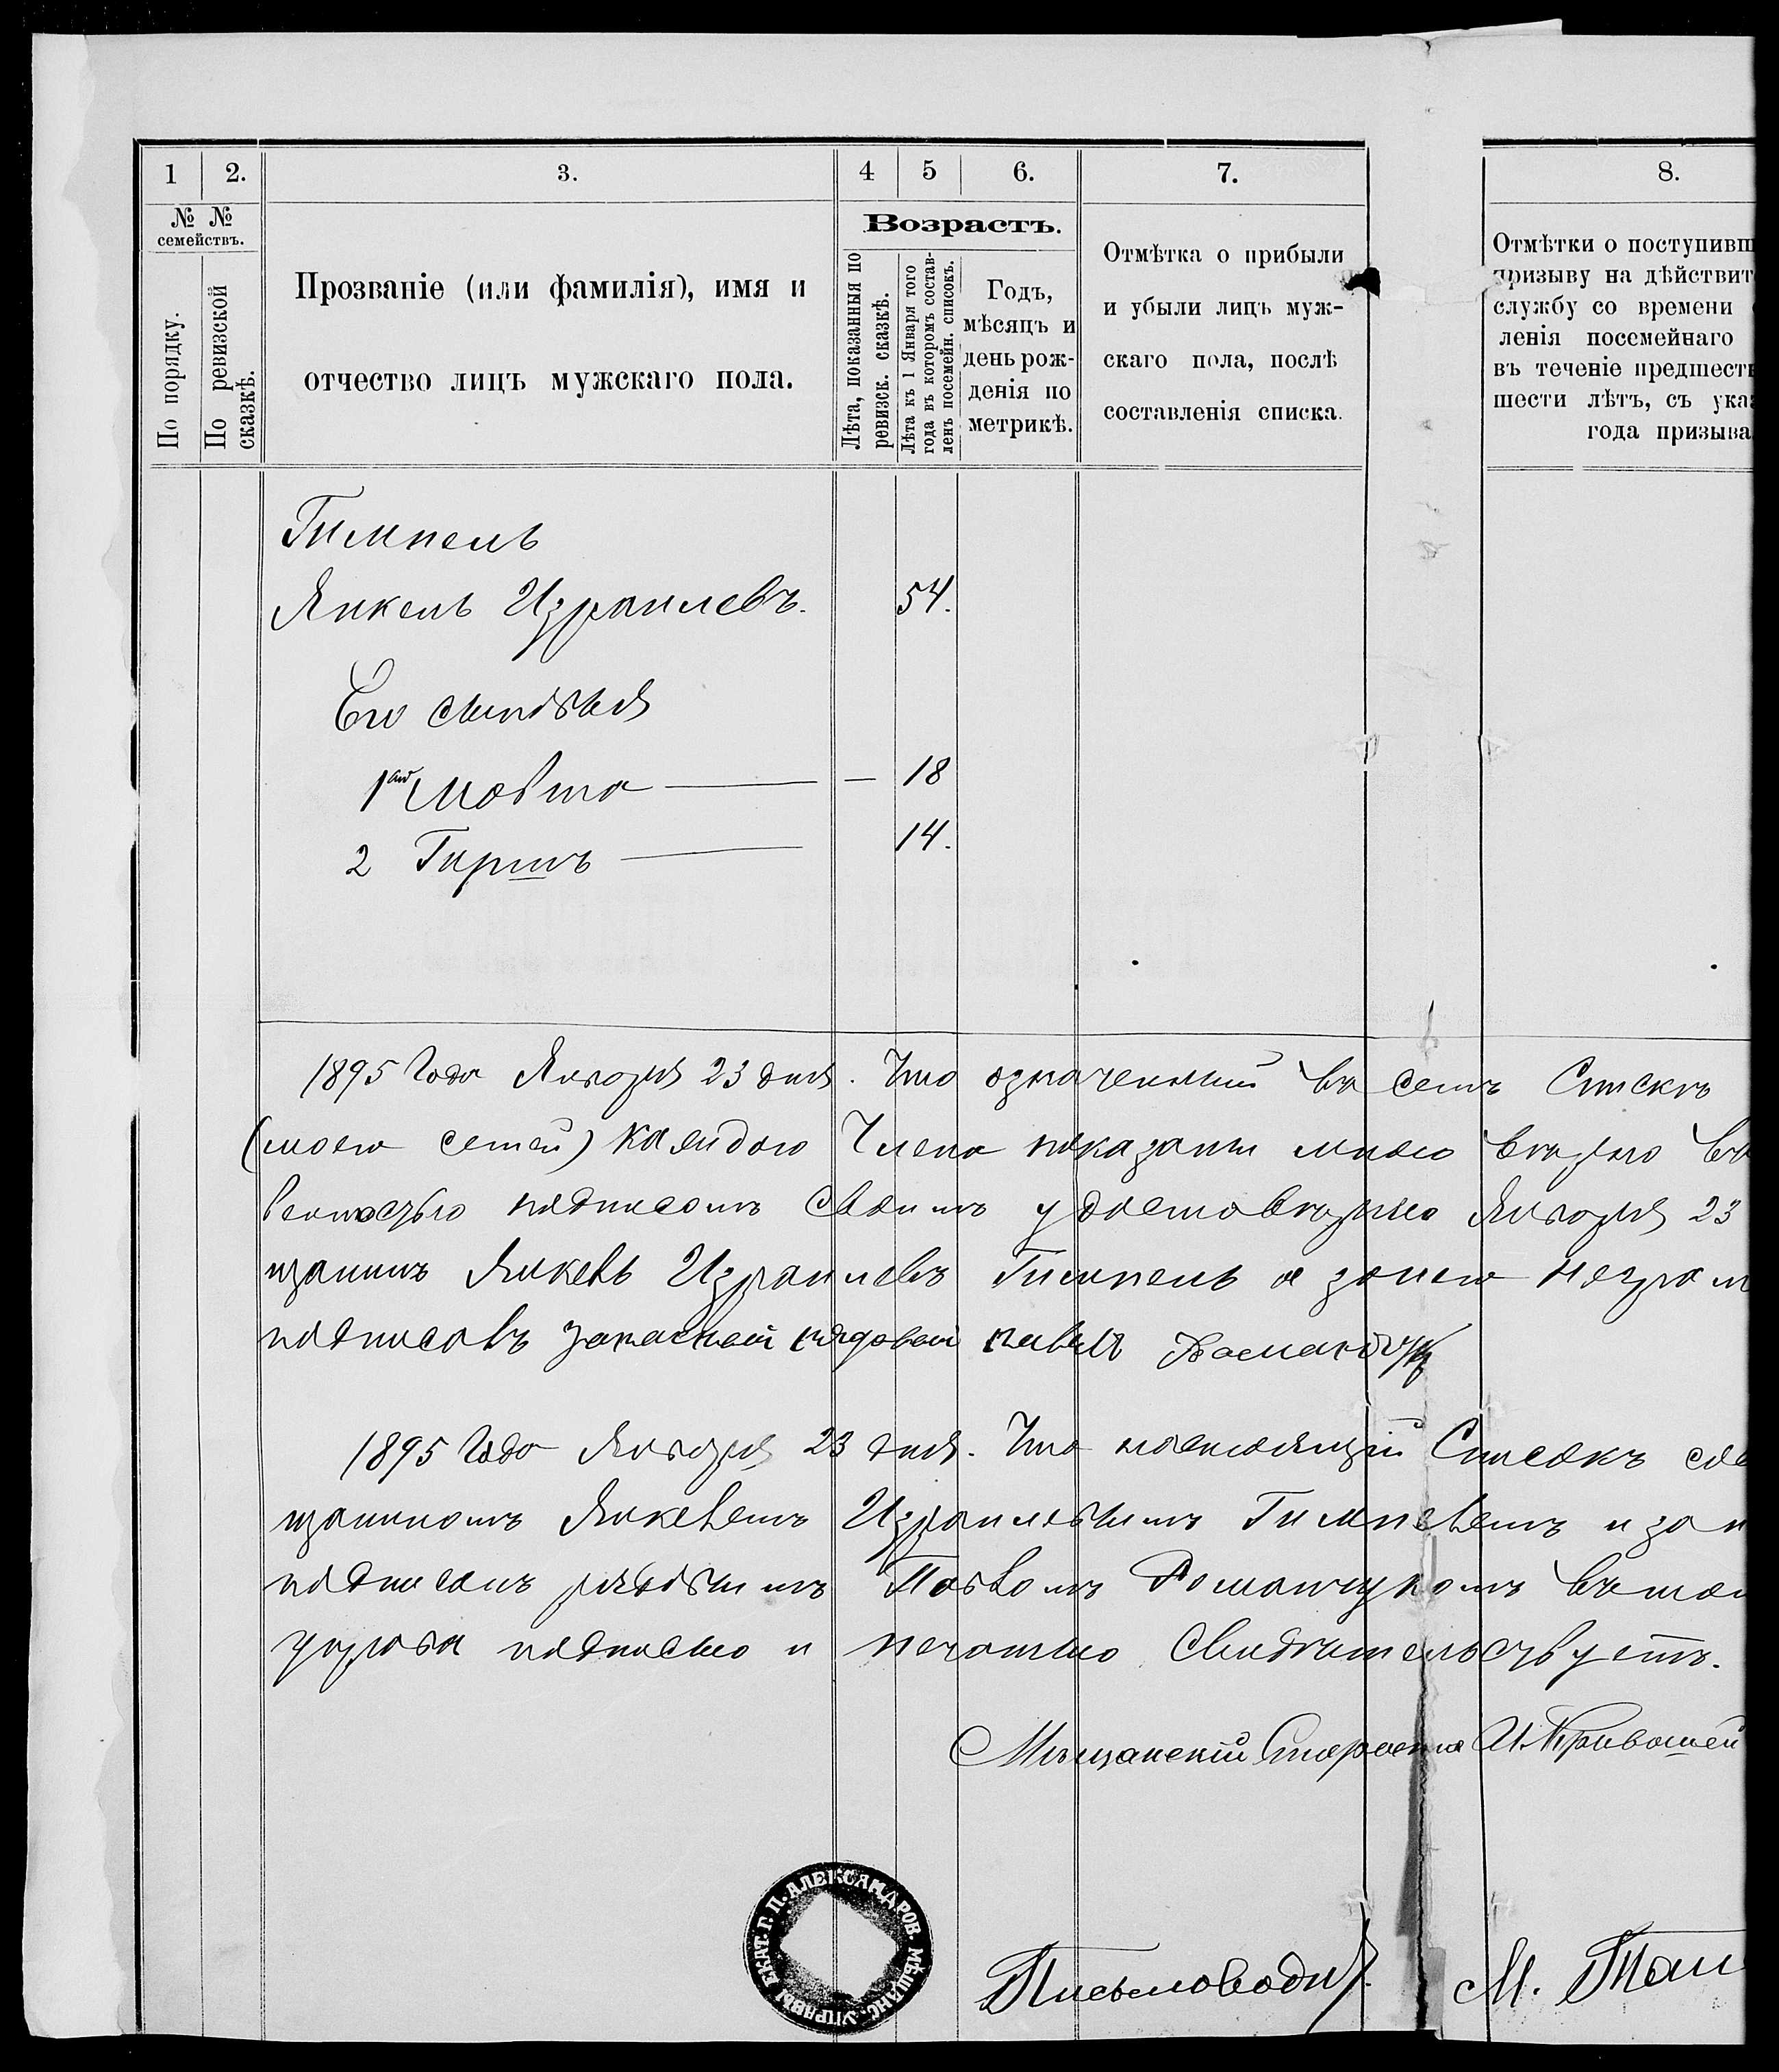 1 2. 3. 4 5 6. 7. 8.
№ № семействъ.
По порядку.
По ревизской сказкѣ.
Прозваніе (или фамилія), имя и
отчество лицъ мужскаго пола.
Возрастъ.
Лѣта, показанныя по ревизск. сказкѣ.
Лѣта къ 1 Января того года въ которомъ составленъ посемейн. списокъ.
Годъ,
мѣсяцъ и
день рож-
денія по
метрикѣ.
Отмѣтка о прибыли
и убыли лицъ муж-
скаго пола, послѣ
составленія списка.
Отмѣтки о поступивш
призыву на дѣйствит
службу со времени
ленія посемейнаго
въ теченіе предшеств
шести лѣтъ, съ ука
года призыва
Гимпель
Янкель Израилевъ. 54.
Его сыновья
1ый Мовша — — 18
2 Гиршъ — 14.
1895 года Января 23 дня. Что означенный въ семъ Списке
(моей семьи) каждого Члена показаны мною верно
подписомъ своимъ удостоверяю Января 23
щанинъ Янкель Израилевъ Гимпель а за него неграм
подписавъ запасной рядовой Романчук
1895 года Января 23 дня. Что настоящій Списокъ
щаниномъ Янкелемъ Израилевымъ Гимпелемъ и за н
подписанъ рядовымъ Павломъ Романчукомъ в том
управа подписью и печатью свидетельствуетъ.
Мѣщанскій Староста И. Кривошей
ЕКАТ. Г. П. АЛЕКСАНДРОВ. МѢЩАНС. УПРАВЫ
Письмоводит. М. Тан